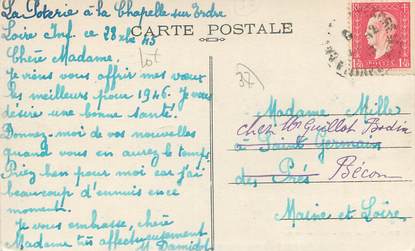 La Poterie à la Chapelle sur Erdre
Loire Inf. ce 28 xbre 45
CARTE POSTALE
Lot
37
Chère Madame,
Je viens vous offrir mes vœux
les meilleurs pour 1946. Je vous
désire une bonne santé.
Donnez-moi de vos nouvelles
quand vous en aurez le temps.
Priez bien pour moi car j'ai
beaucoup d'ennuis en ce
moment.
Je vous embrasse, chère
Madame très affectueusement
M. Damidot
Madame Mille
chez Mr Guillot Bodin
à Saint Germain
des Prés Bécon
Maine et Loire